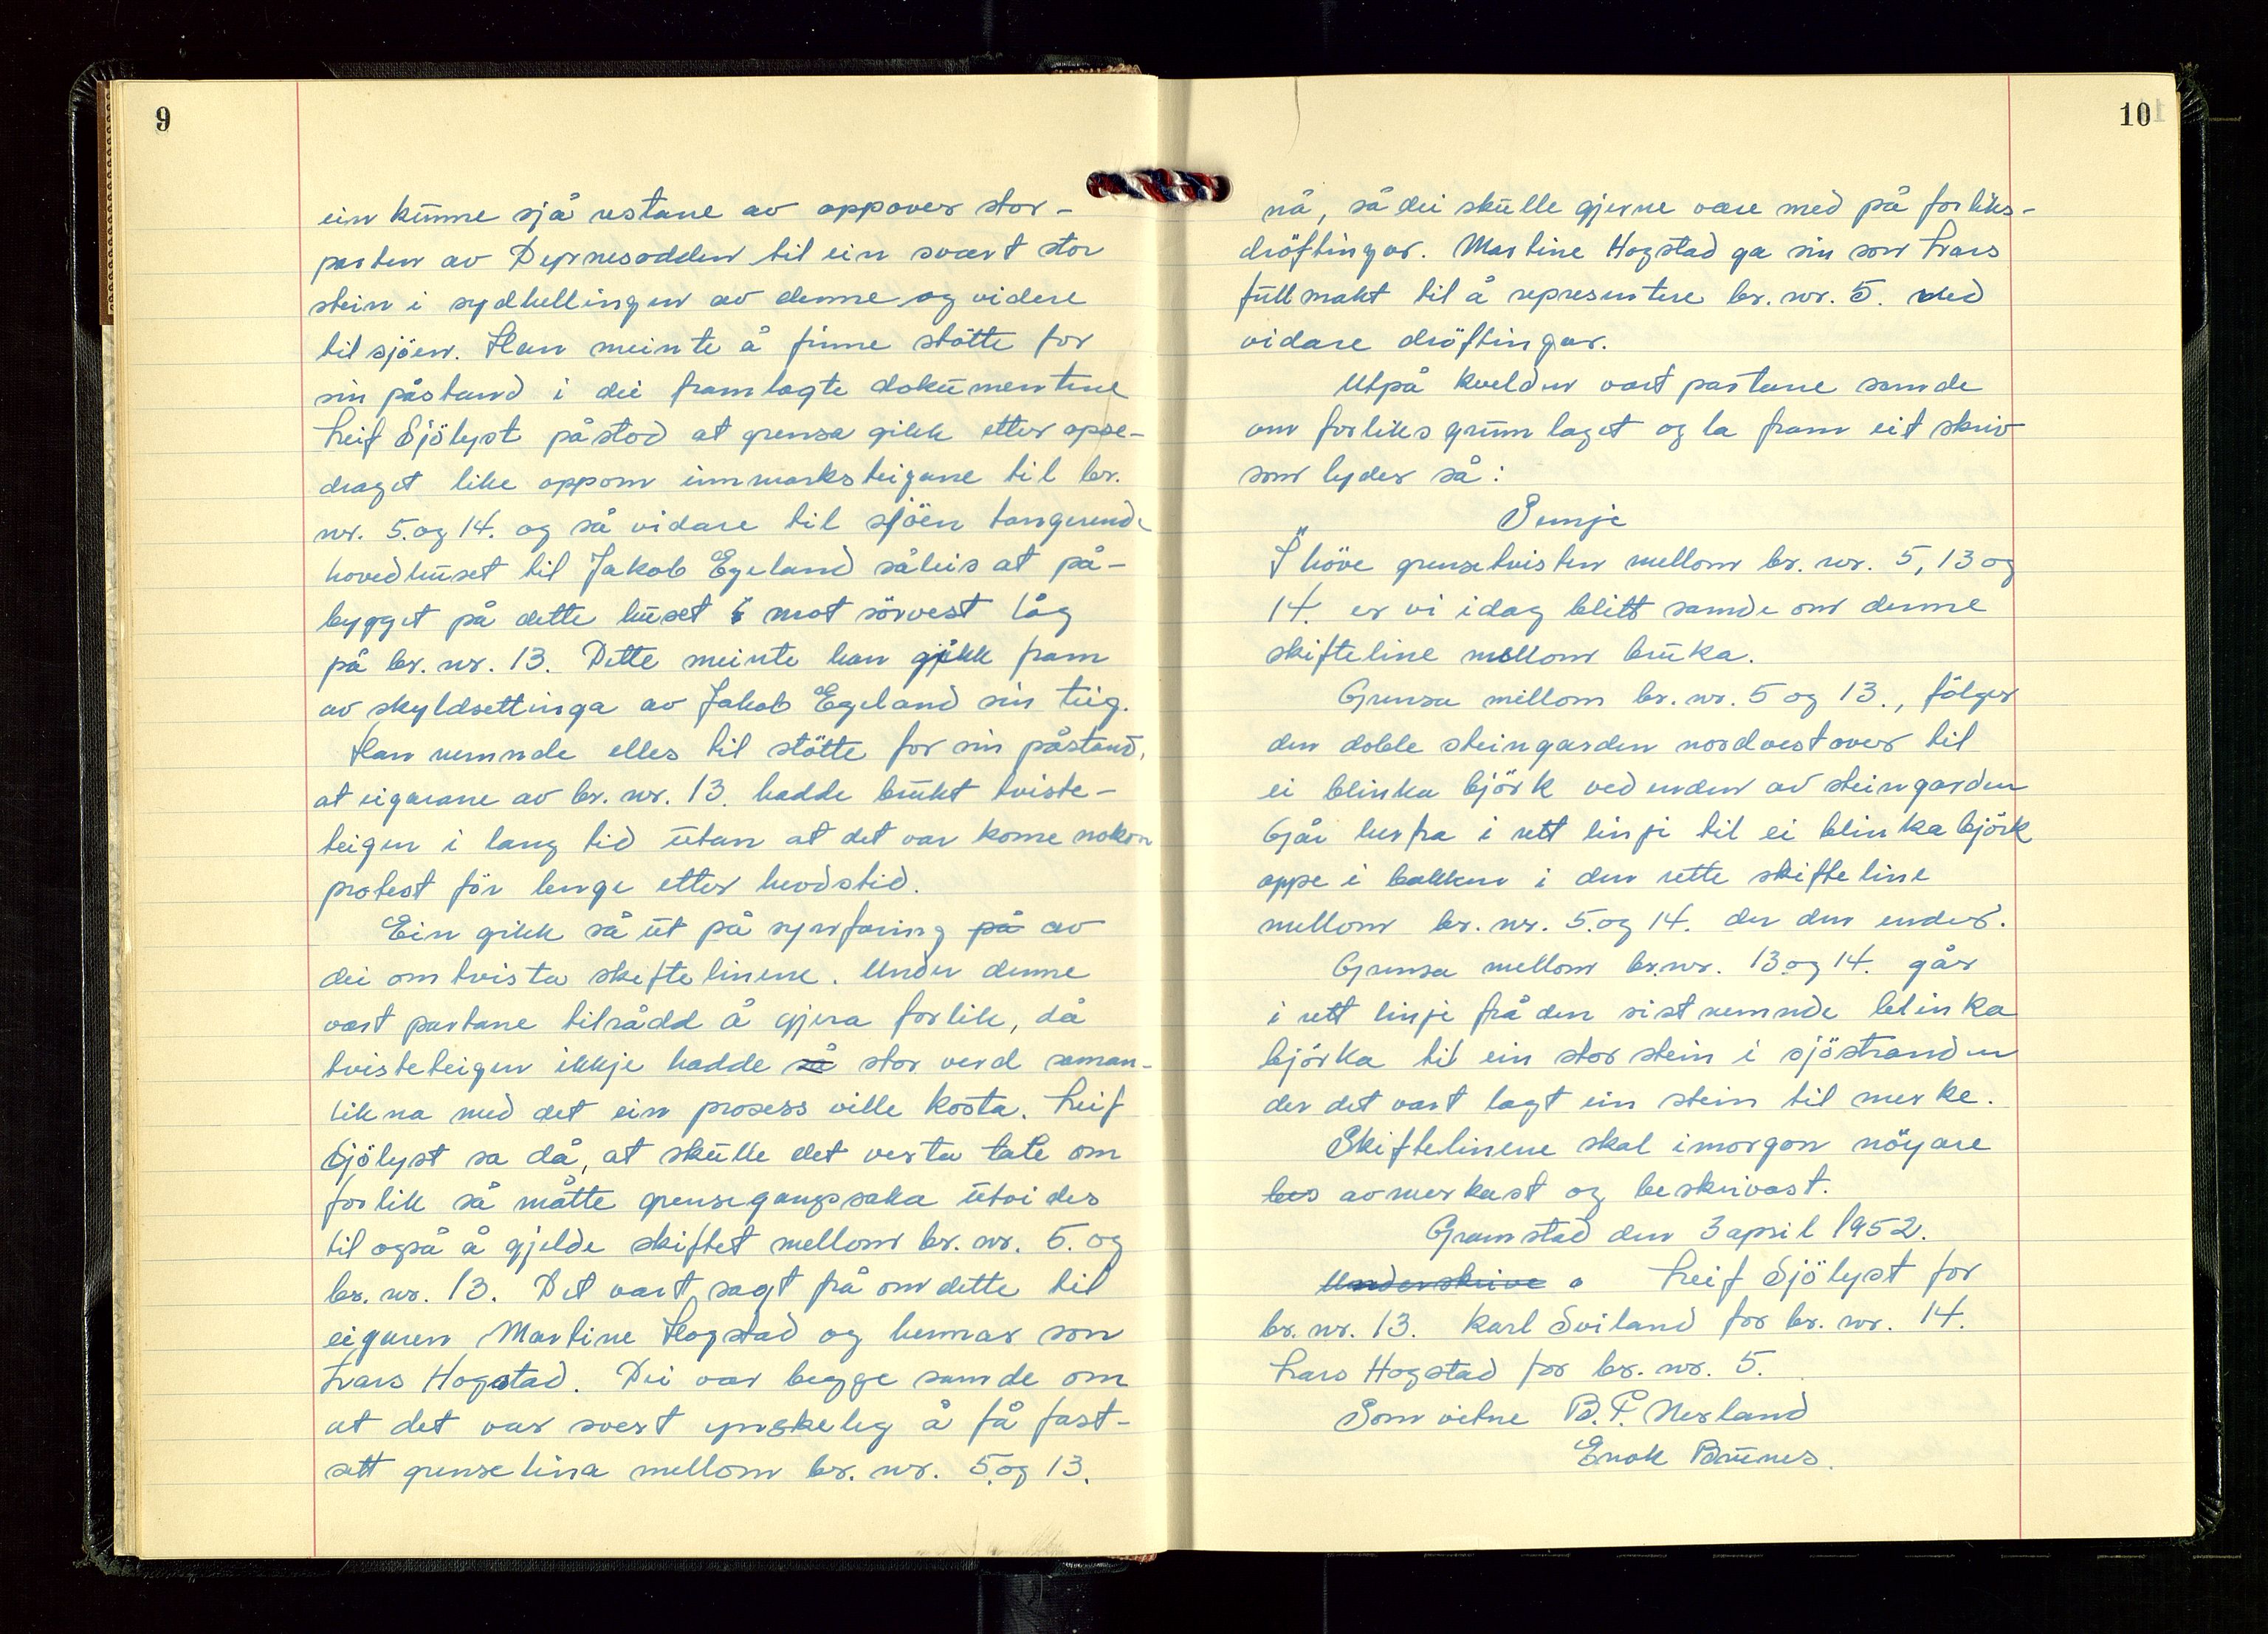 9
ein kunne sjå restane av oppover stor-
parten av Dyrnesodden til ein svært stor
stein i sydhellingen av denne og videre
til sjöen. Han meinte å finne stötte for
sin påstand i dei framlagte dokumentene
Leif Sjölyst påstod at grensa gikk etter opse-
draget like oppom innmarksteigane til br.
nr. 5. og 14. og så vidare til sjöen tangerende
hovedhuset til Jakob Egeland såleis at på-
bygget på dette huset mot sörvest låg
på br. nr. 13. Dette meinte han gjekk fram
av skyldsettinga av Jakob Egeland sin teig.
Han nemnde elles til stötte for sin påstand,
at eigarane av br. nr. 13. hadde brukt tviste-
teigen i lang tid utan at det var kome nokon
protest för lenge etter hevdstid.
Ein gikk så ut på synfaring på av
dei omtvista skiftelinene. Under denne
vart partane tilrådd å gjera forlik, då
tvisteteigen ikkje hadde så stor verd saman-
likna med det ein prosess ville kosta. Leif
Sjölyst sa då, at skulle det verta tale om
forlik så måtte grensegangssaka utvides
til også å gjelde skiftet mellom br. nr. 5. og
br. nr. 13. Det vart sagt frå om dette til
eigaren Martine Hogstad og hennar son
Lars Hogstad. Dei var begge samde om
at det var svert ynskeleg å få fast-
sett grenselina mellom br. nr. 5. og 13.
10
nå, så dei skulle gjerne være med på forliks-
dröftingar. Martine Hogstad ga sin son Lars
fullmakt til å representere br. nr. 5. ved
vidare dröftingar.
Utpå kvelden vart partane samde
om forliksgrunlaget og la fram eit skriv
som lyder så:
Semje
"I höve grensetvisten mellom br. nr. 5, 13 og
14. er vi idag blitt samde om denne
skifteline mellom bruka.
Grensa mellom br. nr. 5 og 13., fölger
den doble steingarden nordvestover til
ei blinka björk ved enden av steingarden
Går herfra i rett linje til ei blinka björk
oppe i bakken i den rette skifteline
mellom br. nr. 5. og 14. der den ender.
Grensa mellom br. nr. 13. og 14. går
i rett linje frå den sistnemnde blinka
björka til ein stor stein i sjöstranden
der det vart lagt ein stein til merke.
Skiftelinene skal imorgon nöyare
bes avmerkast og beskrivast.
Gramstad den 3 april 1952.
Underskrive Leif Sjölyst for
br. nr. 13. Karl Sviland for br. nr. 14.
Lars Hogstad for br. nr. 5.
Som vitne B. Å. Nesland
Enok Brunes.